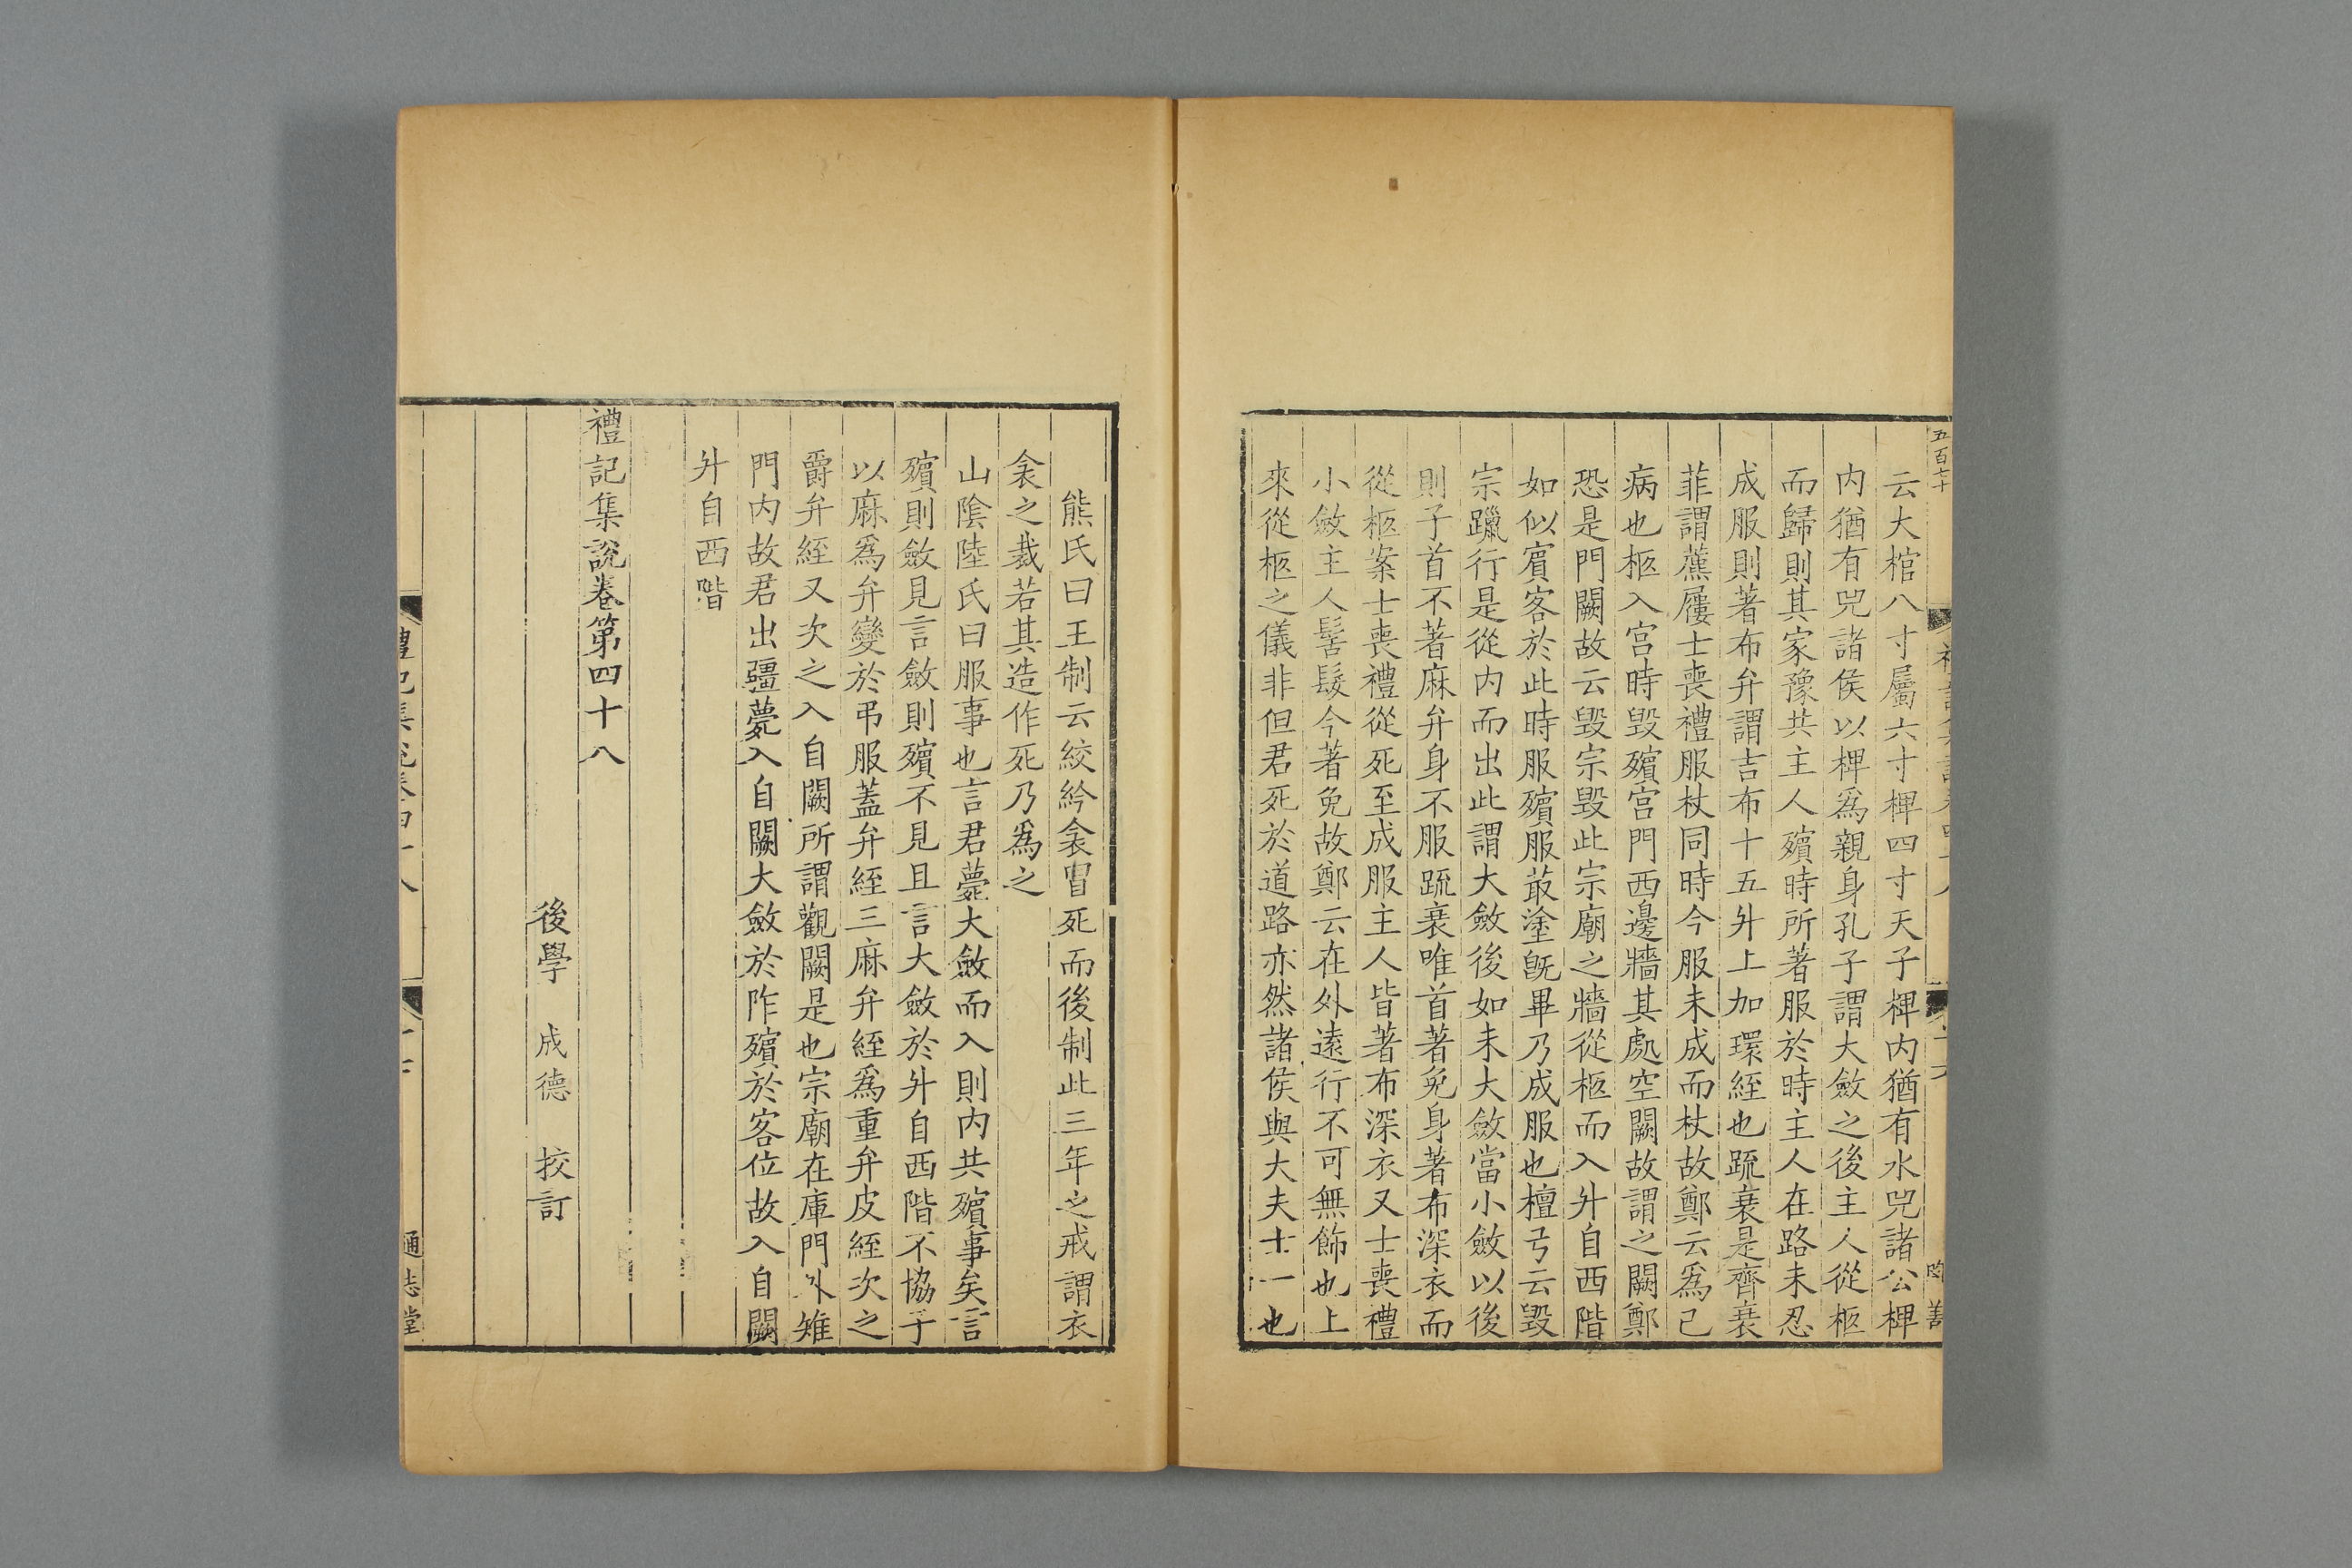 五百七十
云大棺八寸屬六寸椑四寸天子椑内猶有水兕諸公椑
内猶有兕諸侯以椑爲親身孔子謂大斂之後主人從柩
而歸則其家豫共主人殯時所著服於時主人在路未忍
成服則著布弁謂吉布十五升上加環絰也疏衰是齊衰
菲謂藨屨士喪禮服杖同時今服未成而杖故鄭云爲己
病也柩入宫時毁殯宫門西邊牆其處空闕故謂之闕鄭
恐是門闕故云毁宗毁此宗廟之牆從柩而入升自西階
如似賔客於此時服殯服菆塗旣畢乃成服也檀弓云毁
宗躐行是從内而出此謂大斂後如未大斂當小斂以後
則子首不著麻弁身不服疏衰唯首著免身著布深衣而
從柩案士喪禮從死至成服主人皆著布深衣又士喪禮
小斂主人髺髮今著免故鄭云在外遠行不可無飾也上
來從柩之儀非但君死於道路亦然諸侯與大夫士一也
熊氏曰王制云絞紟衾冒死而後制此三年之戒謂衣
衾之裁若其造作死乃爲之
山陰陸氏曰服事也言君薨大斂而入則内共殯事矣言
殯則斂見言斂則殯不見且言大斂於升自西階不協于
以麻爲弁變於弔服蓋弁絰三麻弁絰爲重弁皮絰次之
爵弁絰又次之入自闕所謂觀闕是也宗廟在庫門外雉
門内故君出疆薨入自闕大斂於阼殯於客位故入自闕
升自西階
禮記集說卷第四十八
後學 成德 挍訂
禮記集說卷四十八
通志堂